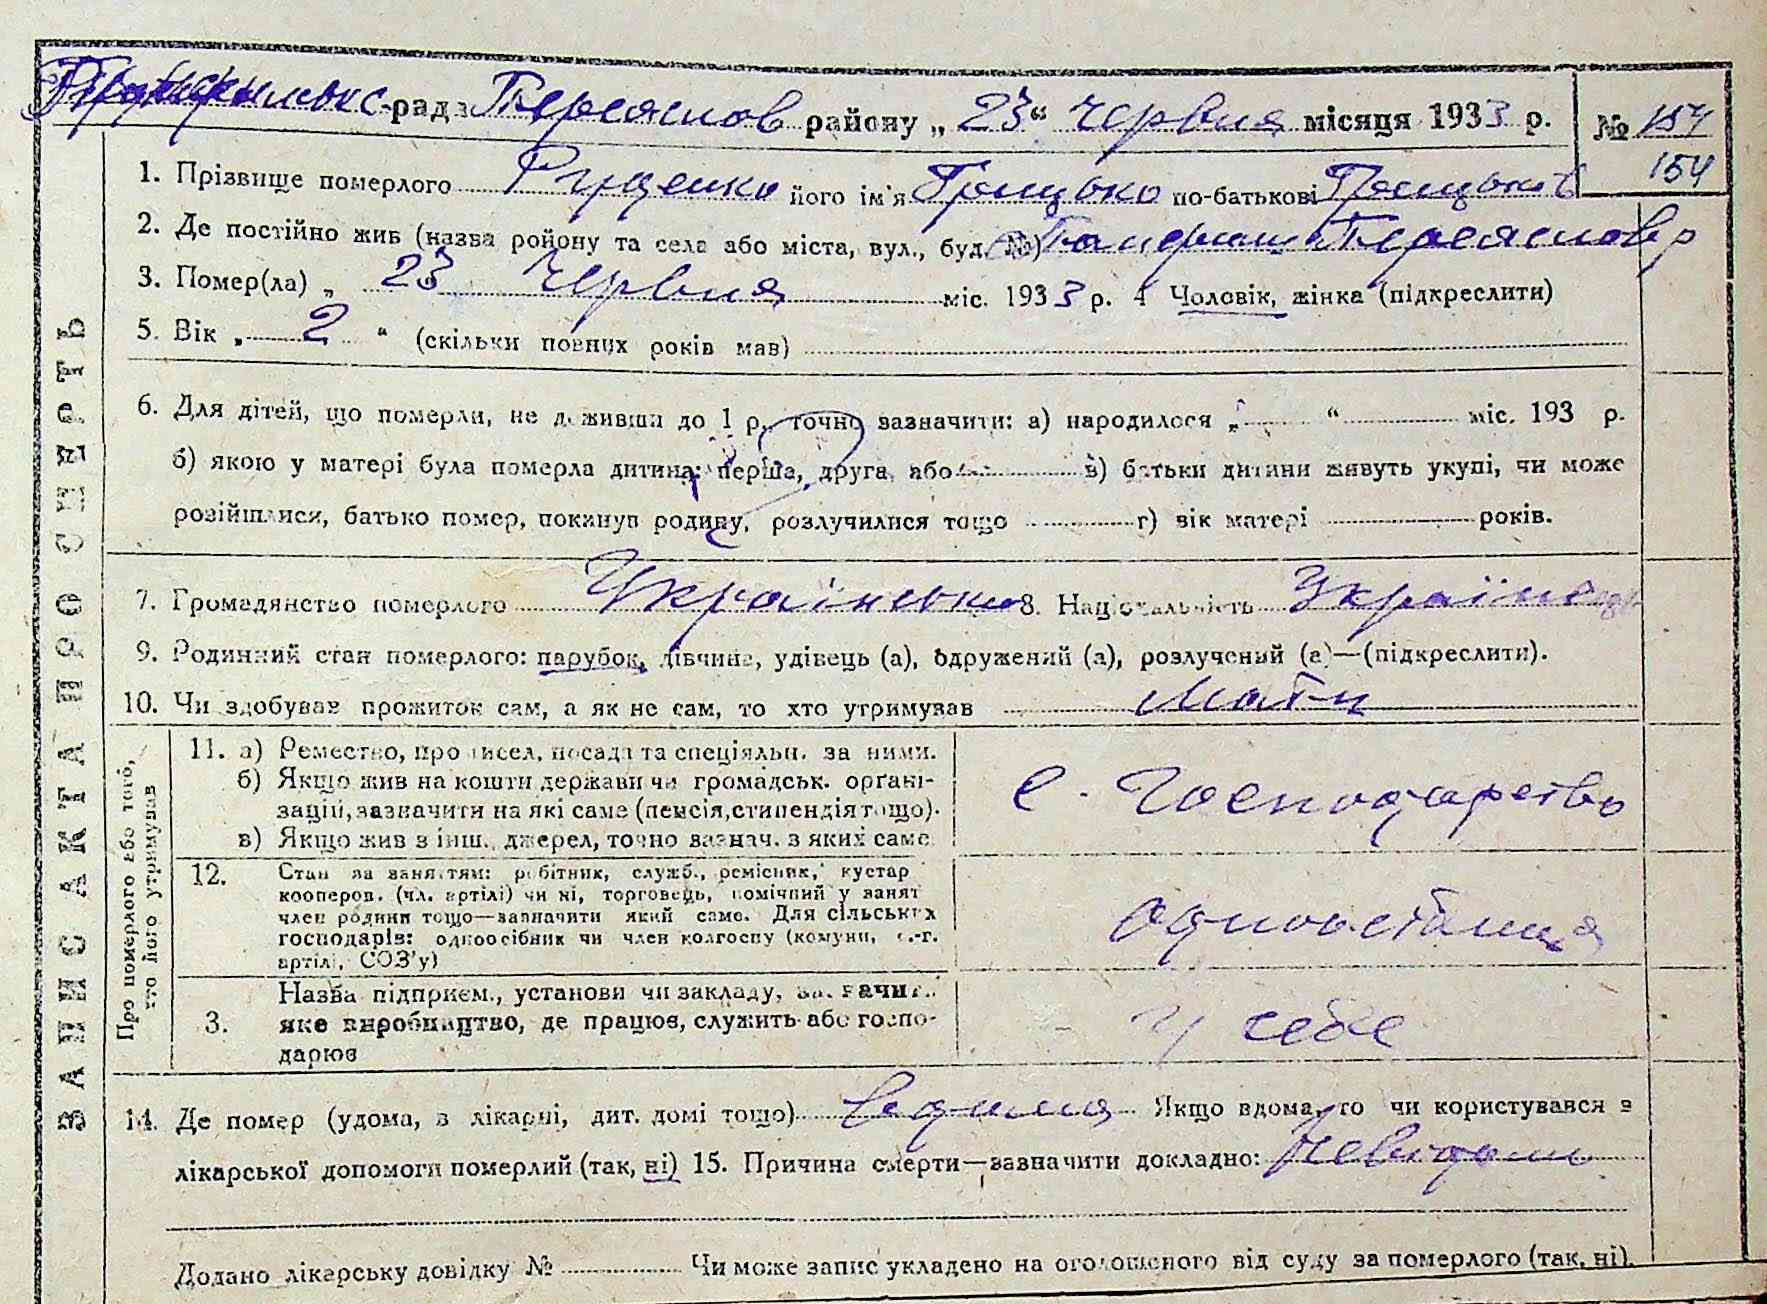 рада Переяслов району „ 23 “ червня місяця 1933 р. № 154
154
1. Прізвище померлого Руденко його ім'я Грицько по-батькові
2. Де постійно жив (назва району та села або міста, вул., буд. №) Переяслов р
3. Помер(ла) „ 23 червня міс. 1933 р. 4 Чоловік, жінка (підкреслити)
5. Вік „ 2 “ (скільки повних років мав)
6. Для дітей, що померли, не доживши до 1 р., точно зазначити: а) народилося „ “ міс. 193 р.
б) якою у матері була померла дитина: перша, друга, або в) батьки дитини живуть укупі, чи може
розійшлися, батько помер, покинув родину, розлучилися тощо г) вік матері років.
7. Громадянство померлого Українське 8. Національність Українець
9. Родинний стан померлого: парубок, дівчина, удівець (а), одружений (а), розлучений (а)—(підкреслити).
10. Чи здобував прожиток сам, а як не сам, то хто утримував Мати
ЗАПИС АКТА ПРО СМЕРТЬ
Про померлого або того, хто його утримував
11. а) Ремество, промисел, посада та спеціяльн. за ними.
б) Якщо жив на кошти держави чи громадськ. органі-
зацій, зазначити на які саме (пенсія, стипендія тощо).
в) Якщо жив з інш. джерел, точно зазнач. з яких саме
с. Господарство
12. Стан за заняттям: робітник, служб., ремісник, кустар
кооперов. (чл. артілі) чи ні, торговець, помічний у занят
член родини тощо—зазначити який саме. Для сільських
господарів: одноосібник чи член колгоспу (комуни, с.-г.
артілі, СОЗ'у)
одноосібниця
3. Назва підприєм., установи чи закладу, зазначит.
яке виробництво, де працює, служить або госпо-
дарює
у себе
14. Де помер (удома, в лікарні, дит. домі тощо) вдома Якщо вдома, то чи користувався з
лікарської допомоги померлий (так, ні) 15. Причина смерти—зазначити докладно: Невідомо
Додано лікарську довідку № Чи може запис укладено на оголошеного від суду за померлого (так, ні).